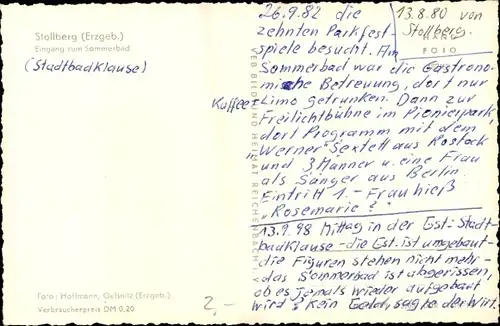 Stollberg (Erzgeb.)
Eingang zum Sommerbad
(Stadtbadklause)
13.8.80 von
Stollberg.
FOTO
26.9.82 die
zehnten Parkfest-
spiele besucht. Am
Sommerbad war die Gastrono-
mische Betreuung, dort nur
Kaffee + Limo getrunken. Dann zur
Freilichtbühne im Pionierpark,
dort Programm mit dem
"Werner" Sextett aus Rostock
und 3 Männer u. eine Frau
als Sänger aus Berlin.
Eintritt 1.- Frau hieß
"Rosemarie?"
13.9.98 Mittag in der Gst: Stadt-
badklause - die Gst. ist umgebaut-
die Figuren stehen nicht mehr-
das Sommerbad ist abgerissen,
ob es jemals wieder aufgebaut
wird? Kein Geld, sagte der Wirt.
VEB BILD UND HEIMAT REICHENBACH I. V.
Foto: Hoffmann, Oelsnitz (Erzgeb.)
Verbraucherpreis DM 0,20
2,-